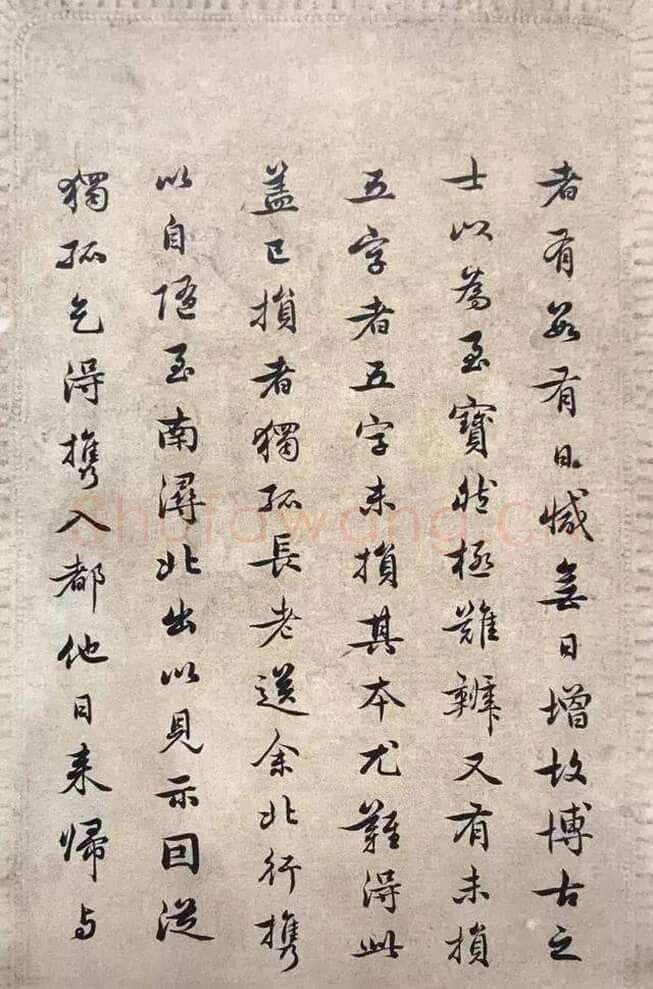 者有數有日減無日增故博古之
士以為至寶然極難辨又有未損
五字者五字未損其本尤難得此
蓋已損者獨孤長老送余北行攜
以自隨至南潯北出以見示因從
獨孤乞得攜入都他日來歸與